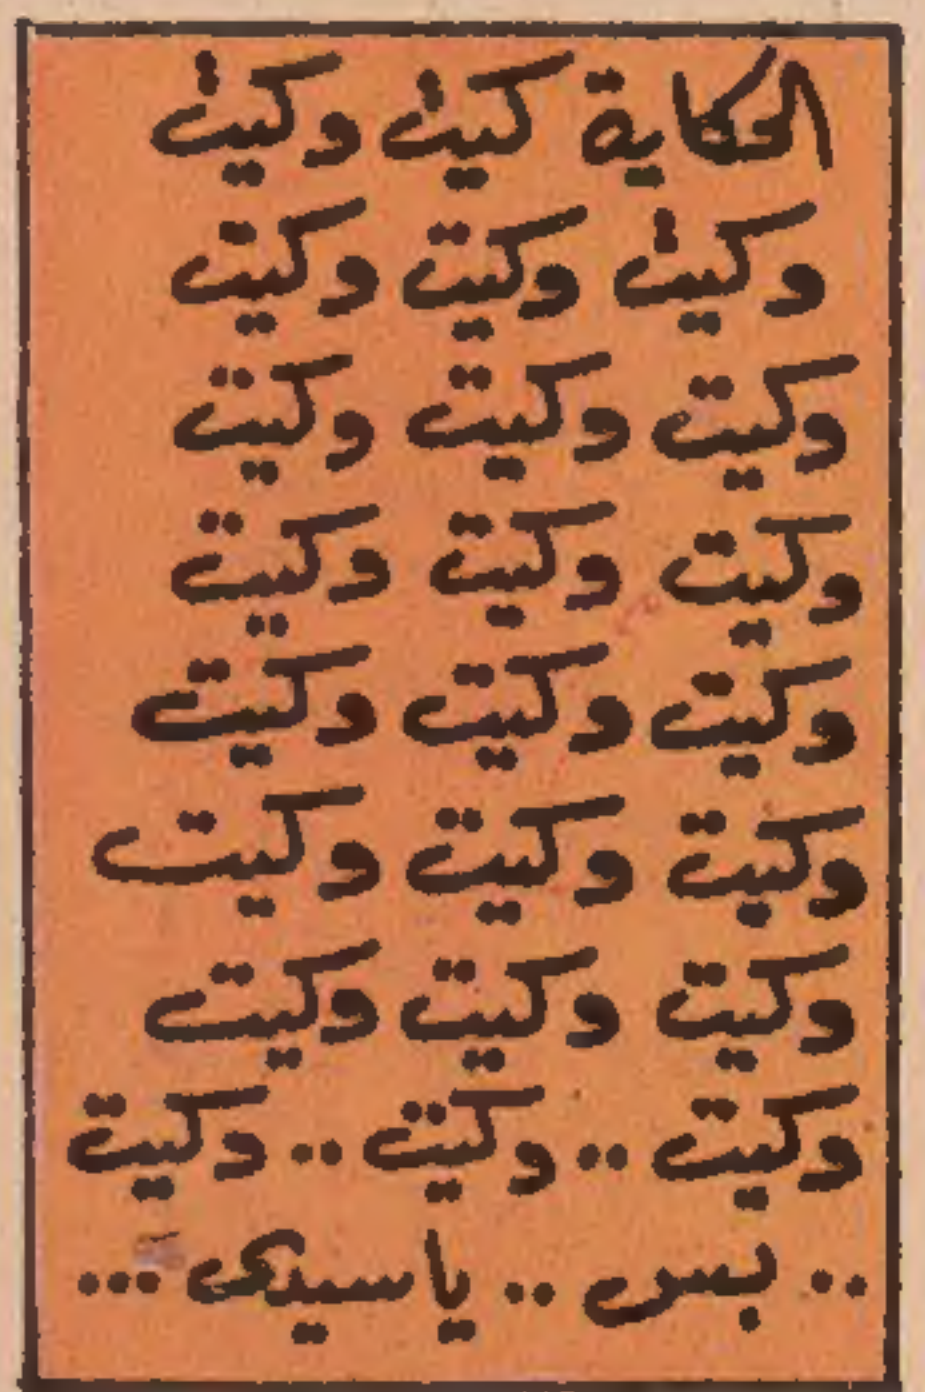 الحكاية كيت وكيت
وكيت وكيت وكيت
وكيت وكيت وكيت
وكيت وكيت وكيت
وكيت وكيت وكيت
وكيت وكيت وكيت
وكيت وكيت وكيت
وكيت .. وكيت .. وكيت
.. بس .. ياسيدى ...